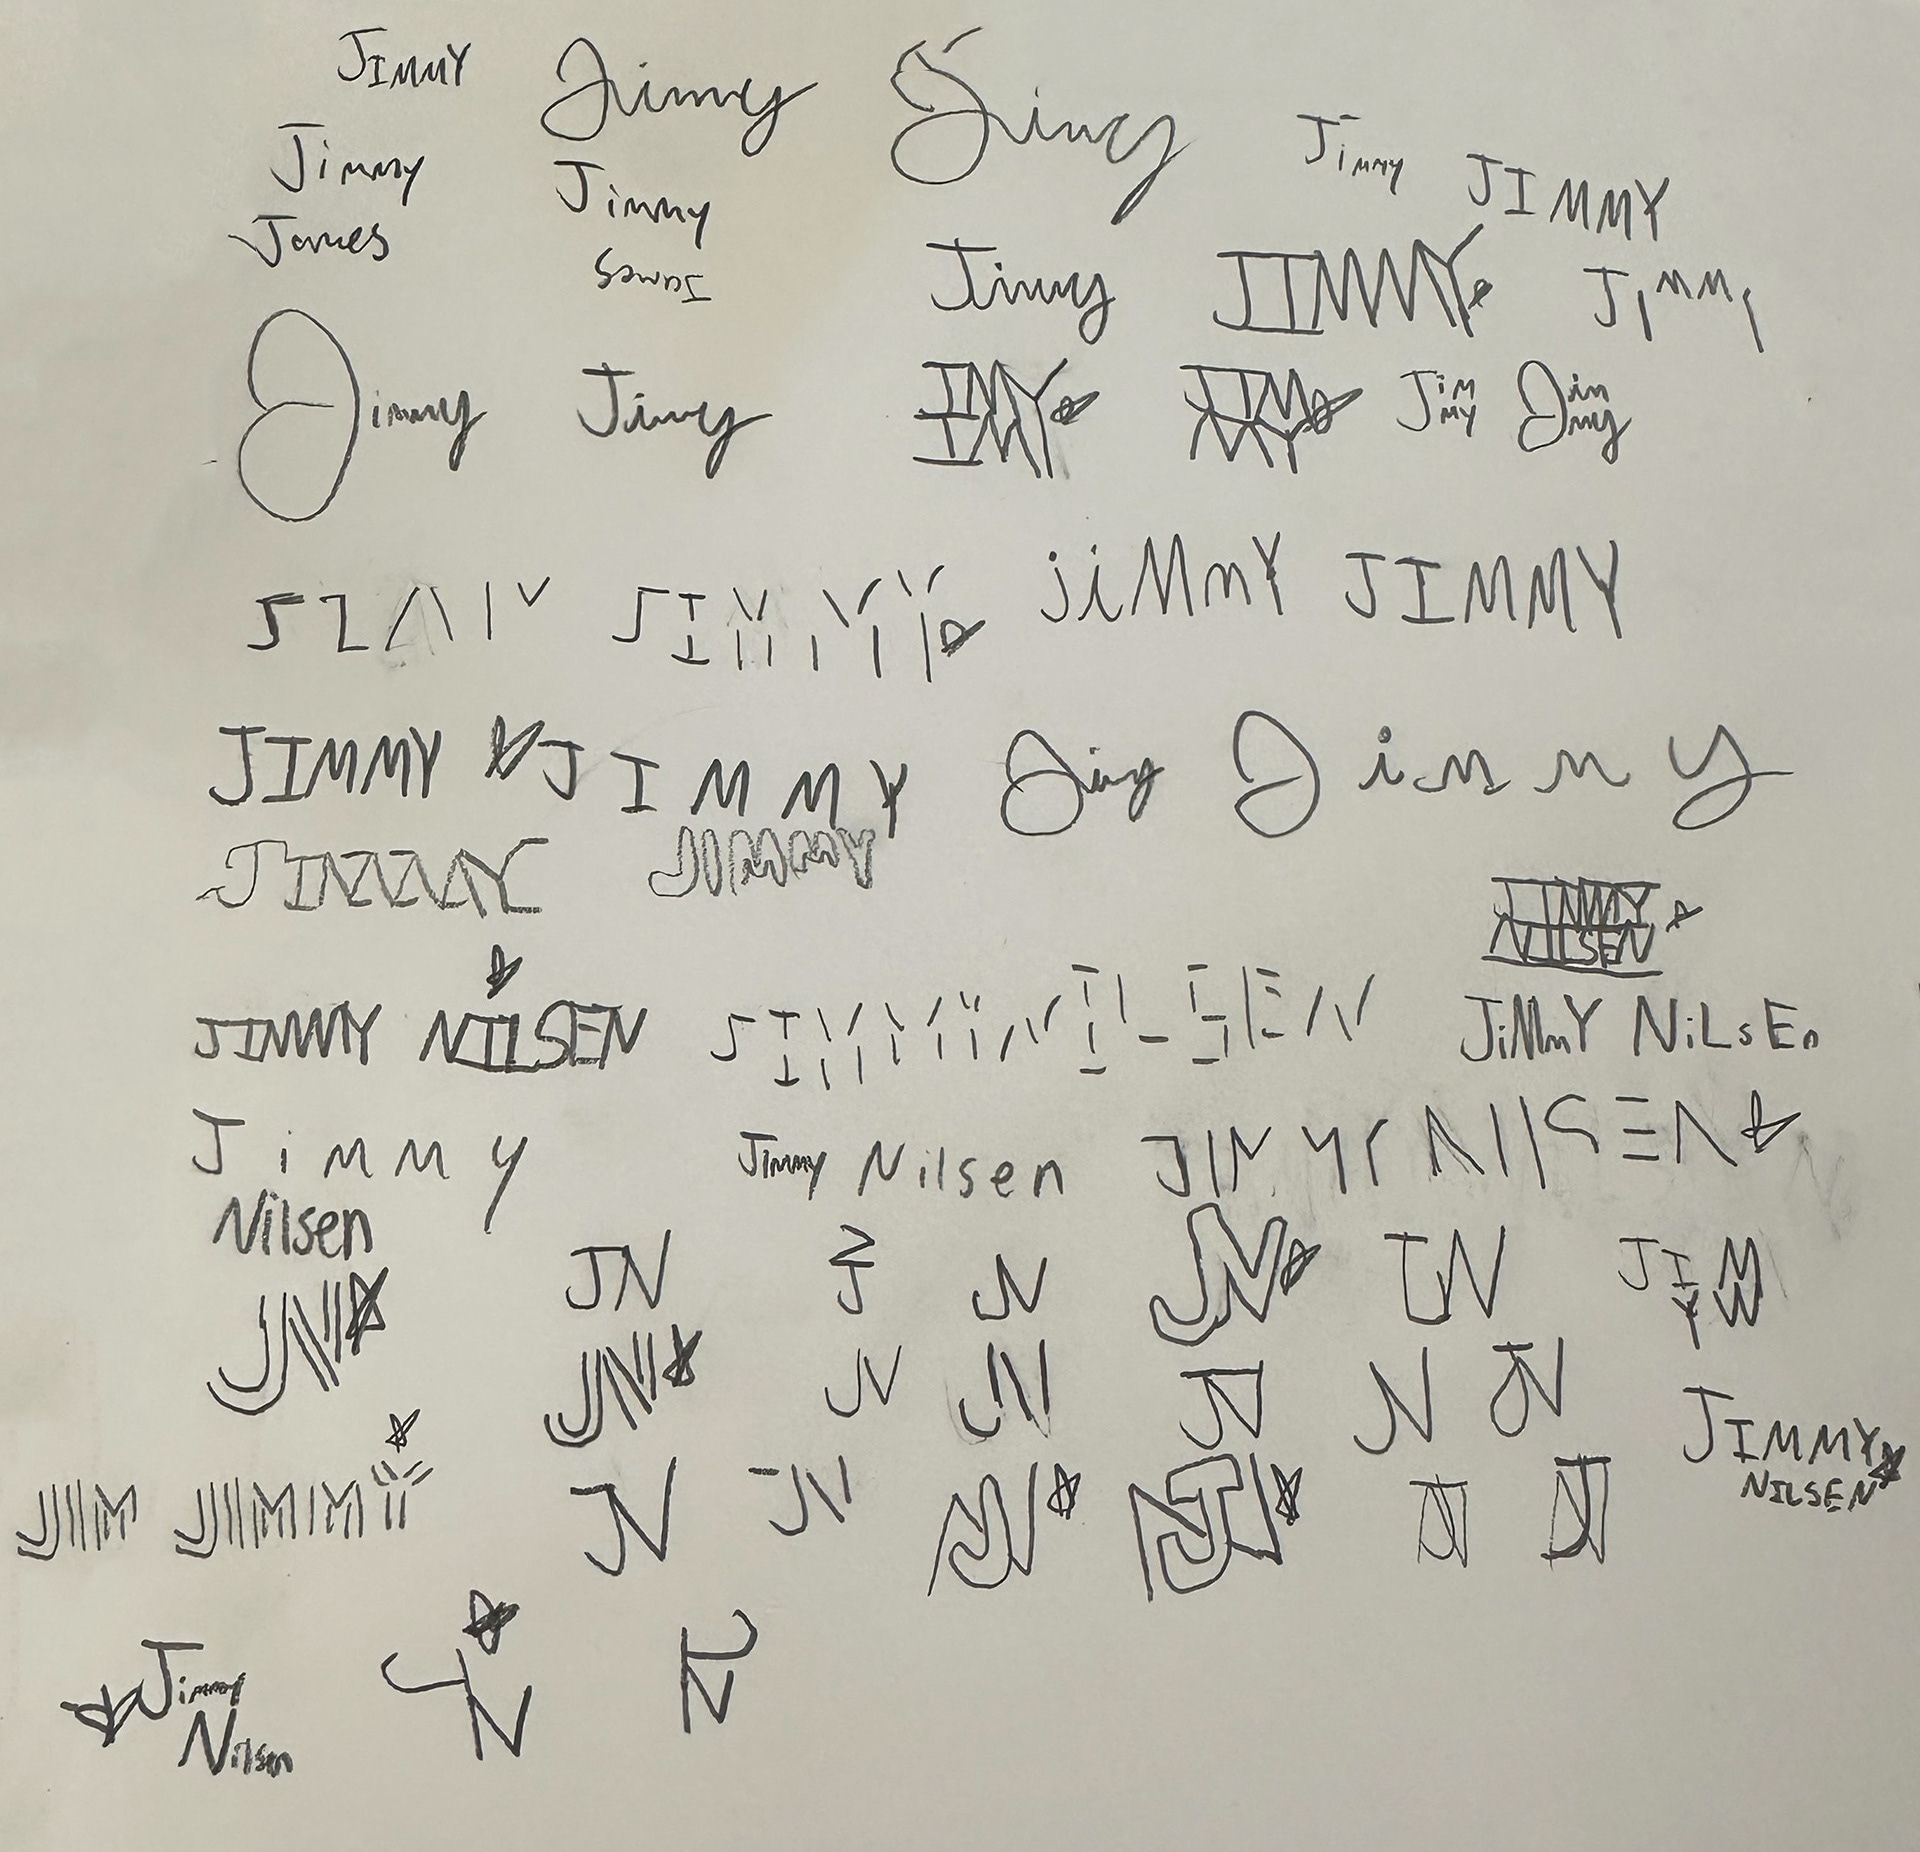 JIMMY Jimmy Jimy Jimmy JIMMY
Jimmy Jimmy
James James Jimmy JIMMY Jimmy
Jimmy Jimy JIM MY Jim my
jiMmY JIMMY
JIMMY JIMMY Jimy Jimmy
JIMMY JIMMY
JIMMY NILSEN
JIMMY NILSEN JIMMY NILSEN JiMmY NiLsEn
Jimmy Jimmy Nilsen JIMMY NILSEN
Nilsen
JN JN JN JN JN JIM
MY
JN JN JN JN JN JN JN JIMMY
NILSEN
JIM JIMMY JN JN JN NJ JN JN
Jimmy
Nilsen JN JN